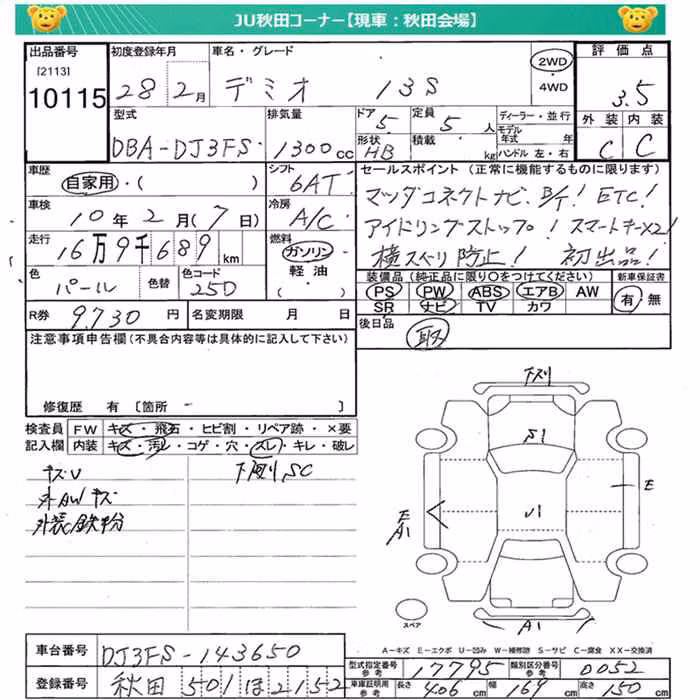 JU秋田コーナー【現車：秋田会場】
出品番号 [2113] 10115
初度登録年月 28 2月
車名・グレード デミオ 13S
2WD ・ 4WD
評価点 3.5
外装 内装 C C
型式 DBA-DJ3FS
排気量 1300cc
ドア 5 定員 5人
形状 HB 積載 kg
ディーラー・並行
モデル年式 年
ハンドル 左・右
車歴 自家用・( )
シフト 6AT
セールスポイント（正常に機能するものに限ります）
マツダコネクトナビ、 ETC！
アイドリングストップ！ スマートキーX2！
横スベリ防止！ 初出品！
車検 10年2月(7日)
冷房 A/C
走行 16万9千689km
燃料 ガソリン 軽油 ( )
色 パール 色替 色コード 25D
装備品（純正品に限り○をつけてください）
PS PW ABS エアB AW
SR ナビ TV カワ
新車保証書 有・無
R券 9,730円
名変期限 月 日
後日品 取
注意事項申告欄（不具合内容等は具体的に記入して下さい）
修復歴 有 〔箇所 〕
検査員 FW キズ・飛石・ヒビ割・リペア跡・×要
記入欄 内装 キズ・汚レ・コゲ・穴・スレ・キレ・破レ
キズU
外AWキズ
外装鉄粉
下廻リSC
下スリ
S1
U1
E
E
A1
A1
スペア
A－キズ E－エクボ U－凹み W－補修跡 S－サビ C－腐食 XX－交換済
車台番号 DJ3FS-143650
登録番号 秋田 501 ほ 2152
型式指定番号 参考 17795
類別区分番号 参考 0052
車庫証明用 参考 長さ 406cm 幅 169cm 高さ 150cm